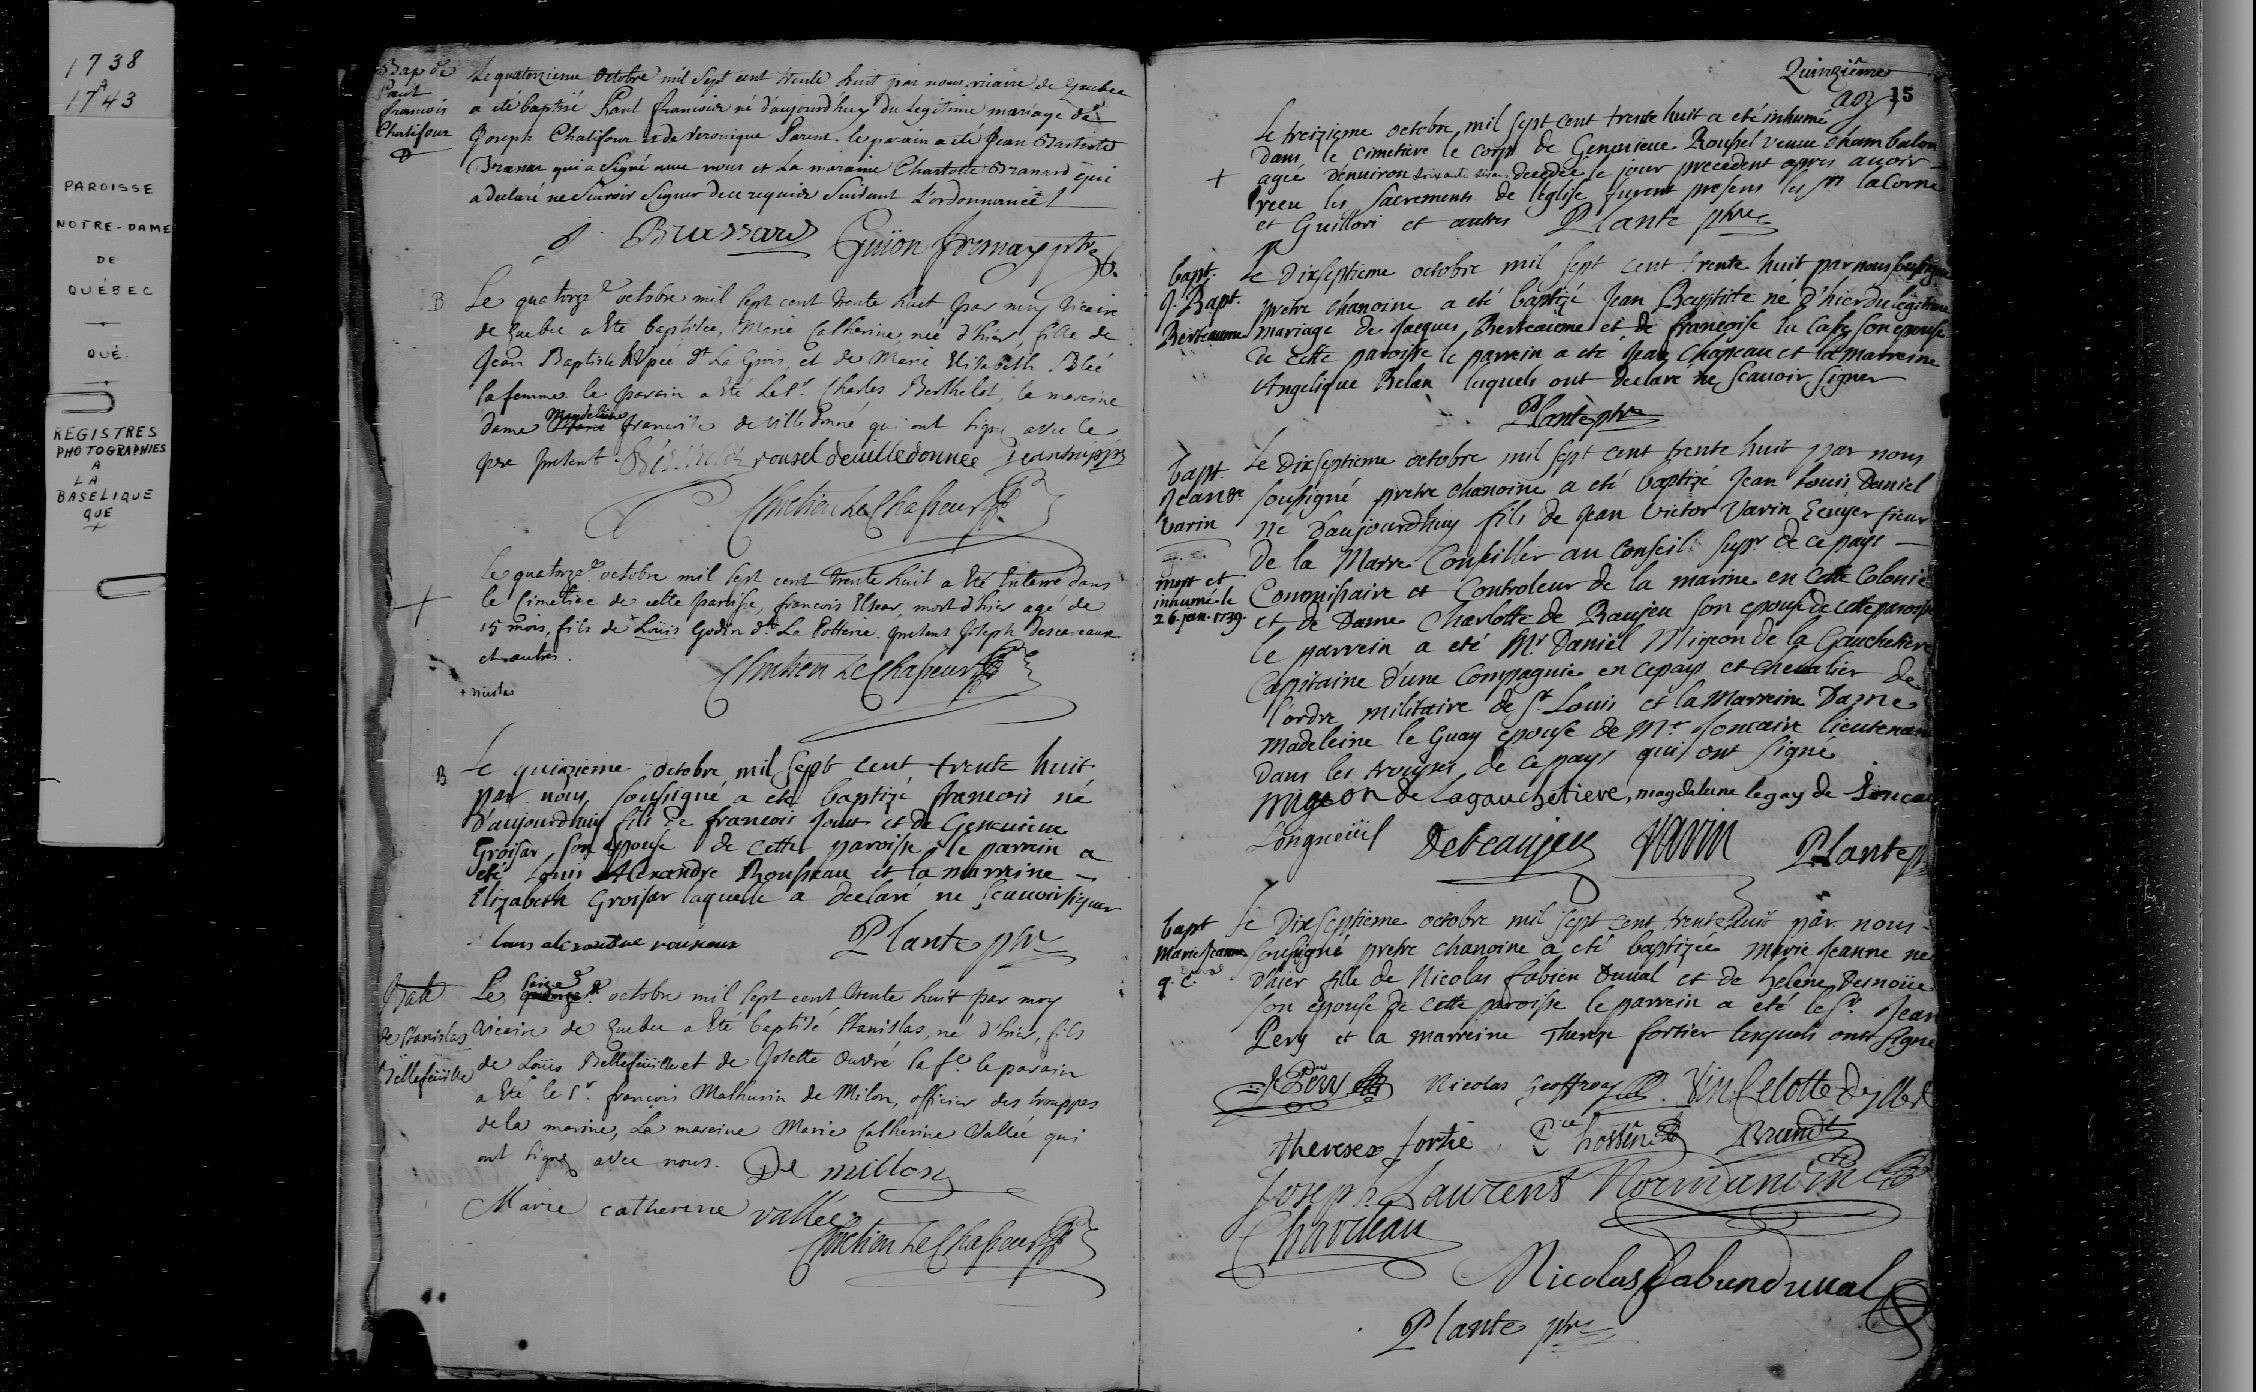 1738
à
1743
PAROISSE
NOTRE-DAME
DE
QUÉBEC
QUÉ.
REGISTRES
PHOTOGRAPHIES
A
LA
BASELIQUE
QUE
Bap de
Paul
francois
Chalifour
Le quatorzieme octobre mil sept cent trente huit par nous vicaire de Quebec
a eté baptisé Paul francois né d'aujourd'huy du legitime mariage de
Joseph Chalifour et de Veronique Parent. le parain a eté Jean Baptiste
qui a signé avec nous et la maraine Charlotte qui
a declaré ne scavoir signer de ce requise suivant l'ordonnance
Brassard Guion fromage ptre
B
Le quatorze octobre mil sept cent trente huit, par moy vicaire
de Quebec a Eté baptisée, Marie Catherine, née d'hier, fille de
Jean Baptiste dt La Grois, et de Marie Elisabeth
sa femme le parain a Eté le Sr. Charles Berthelot, la mareine
Dame Magdeleine francoise de Villedonné qui ont signé avec le
pere present. rousel deuilledonnee
Chretien Le Chasseur
le quatorze octobre mil sept cent trente huit a Eté Enterré dans
le Cimetiere de cette paroisse, francois Elsear, mort d'hier agé de
15 mois, fils de Loüis Godin dt La Potterie. present Joseph Descareaux
et autres.
Chretien Le Chasseur
+ nicolas
B
Le quinzieme octobre mil sept cent trente huit
par nous soussigné a eté baptizé francois né
d'aujourdhuy fils de francois et de Genevieve
Groisar son epouse de cette paroisse le parrein a
eté Louis Alexandre Rousseau et la marreine
Elizabeth Groisar laquelle a declaré ne scauoir signer
louis alexandre rouseaux Plante ptre
Bate
de Stanislas
Bellefeüille
Le seize octobre mil sept cent trente huit par moy
Vicaire de Quebec a Eté baptisé Stanislas, né d'hier, fils
de Loüis Bellefeüille et de Josette Ouvré sa fe. le parain
a Eté le Sr. francois Mathurin de Milon, officier des trouppes
de la marine, La mareine Marie Catherine Vallée qui
ont signé avec nous. De millon
Marie catherine vallée
Chretien Le Chasseur
Quinzième
15
Le treizieme octobre mil sept cent trente huit a eté inhumé
dans le cimetiere le corps de Genevieve Roussel veuve chambalon
agée d'environ decedée le jour precedent apres auoir
receu les sacrements de l'eglise furent presens les srs laCorne
et Guillori et autres Plante ptre
bapt.
J. Bapt.
Berteaume
Le Dixseptieme octobre mil sept cent trente huit par nous soussigné
pretre chanoine a eté baptizé Jean Baptiste né d'hier du legitime
mariage de Jacques Berteaume et de francoise la Case son epouse
de cette paroisse le parrein a eté Jean Chapeau et la marreine
Angelique Belan lesquels ont declaré ne scauoir signer
Plante ptre
bapt.
Jean de
varin
mort et
inhumé le
26. jan. 1739.
Le Dixseptieme octobre mil sept cent trente huit par nous
sousigné pretre chanoine a eté baptizé Jean Louis Daniel
né d'aujourdhuy fils de Jean Victor Varin Ecuyer sieur
De la Marre Conseiller au Conseil Supr. de ce pays
Commissaire et Controleur de la marine en cette Colonie
et de Dame Charlotte de Beaujeu son epouse de cette paroisse
le parrein a eté Mr Daniel Migeon de la Gauchetiere
Capitaine d'une Compagnie en ce pays et chevalier de
l'ordre militaire de St Louis et la Marreine Dame
Madeleine le Guay epouse de Mr Joncaire lieutenant
dans les troupes de ce pays qui ont signé
migeon de lagauchetiere, magdeleine legay de
Longueüil Debeaujeu Varin Plante
bapt
Marie Jeanne
Le Dixseptieme octobre mil sept cent trente huit par nous
sousigné pretre chanoine a eté baptizée marie Jeanne née
d'hier fille de Nicolas fabien Duval et de helene Desnoüe
son epouse de cette paroisse le parrein a eté le Sr. Jean
Pery et la marreine Therese fortier lesquels ont signé
J Pery Nicolas Geoffroy
Therese fortié
Joseph Laurens Normandin
Chavileau
Nicolas fabien duval
Plante ptre